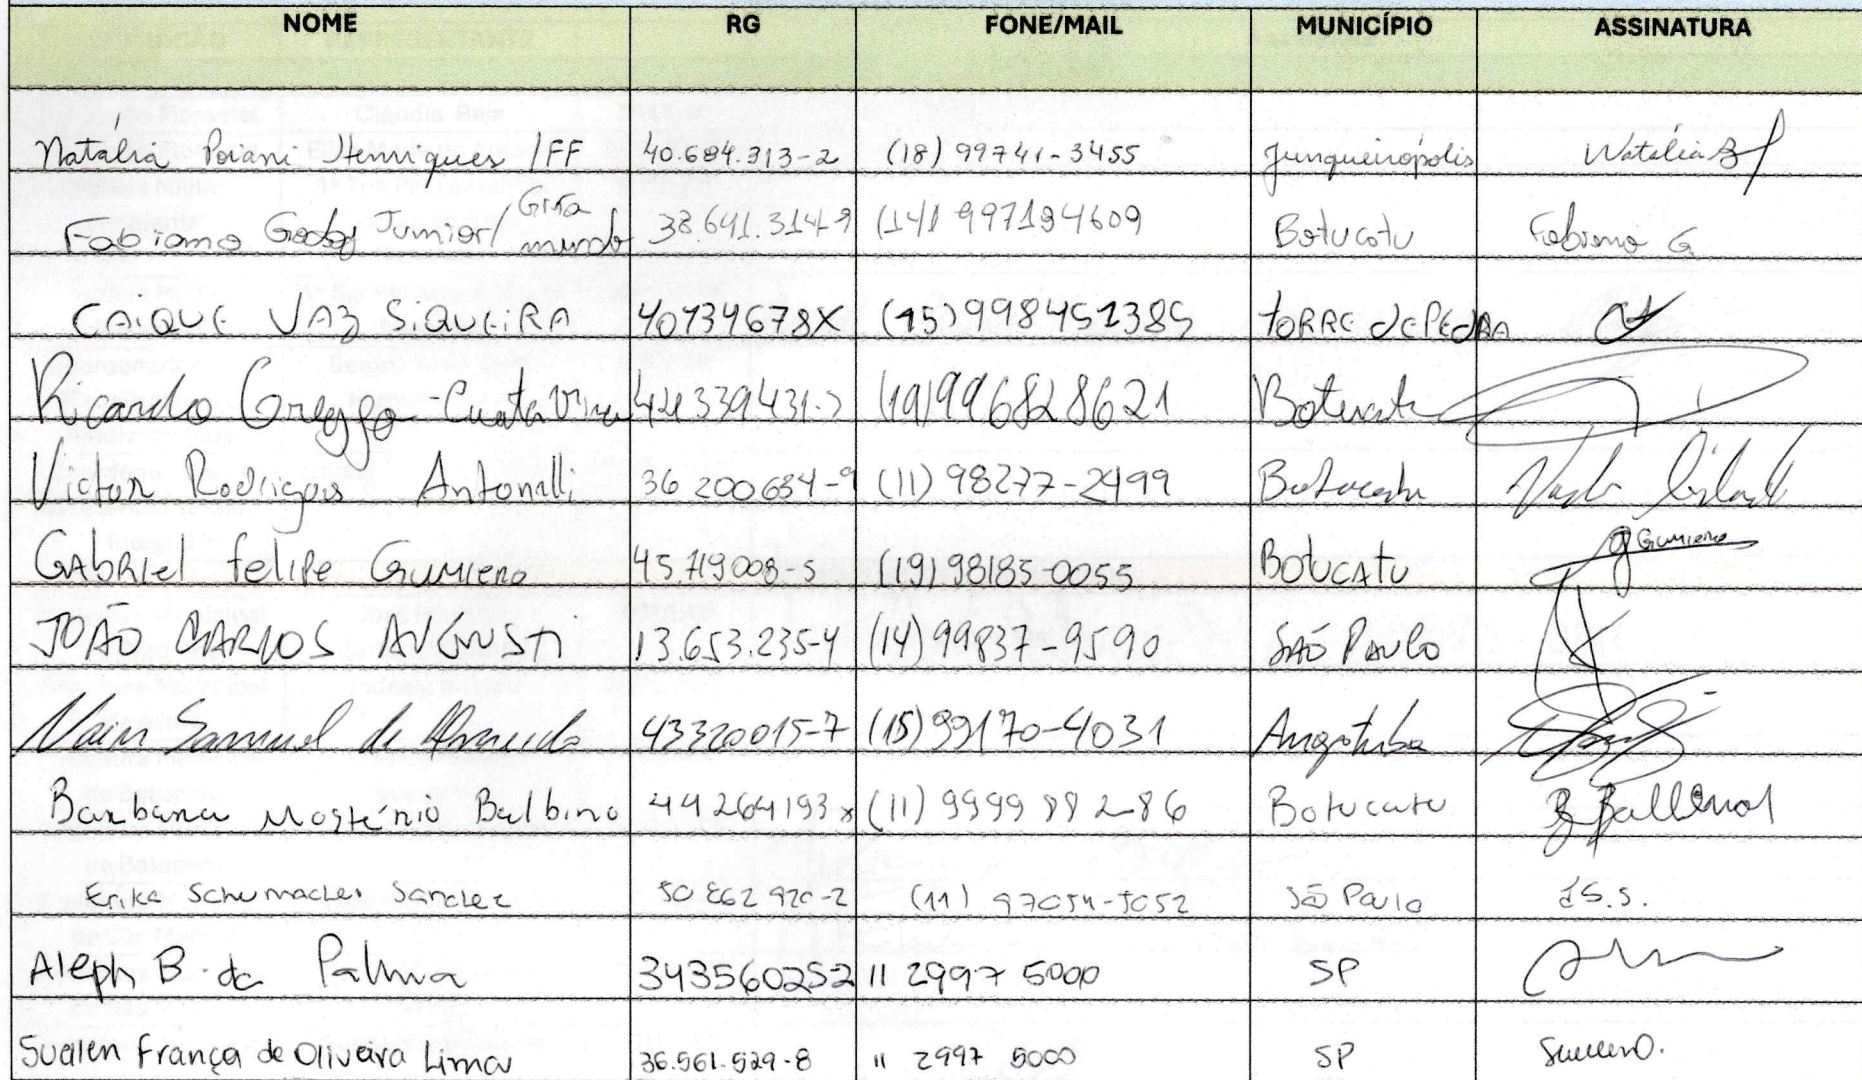 NOME RG FONE/MAIL MUNICÍPIO ASSINATURA
Natália Poiani Henriques /FF 40.684.313-2 (18) 99741-3455 Junqueirópolis Natália
Fabiano Godoy Junior/ Gira mundo 38.641.314-9 (14) 997194609 Botucatu Fabiano G.
CAIQUE VAZ SIQUEIRA 40734678X (15) 998451385 TORRE de PEDRA
Ricardo Greggo - Cuesta Viva (19) 996828621 Botucatu
Victor Rodrigues Antonalli 36 200684-9 (11) 98277-2499 Botucatu
GAbRiel felipe Gumiero 45.719008-5 (19) 98185-0055 BOTUCATU Gumiero
JOÃO CARLOS AUGUSTI 13.653.235-4 (14) 99837-9590 SÃO PAULO
Samuel de Almeida 43320015-7 (15) 99170-4031 Angatuba
Barbara Balbino 44264193x (11) 9999 89 286 Botucatu
Erika Schumacher Sanchez 50 862 920-2 (11) 97054-5052 São Paulo
Aleph B. da Palma 343560252 11 2997 5000 SP
Suellen França de Oliveira Lima 36.561.529-8 11 2997 5000 SP Suellen O.